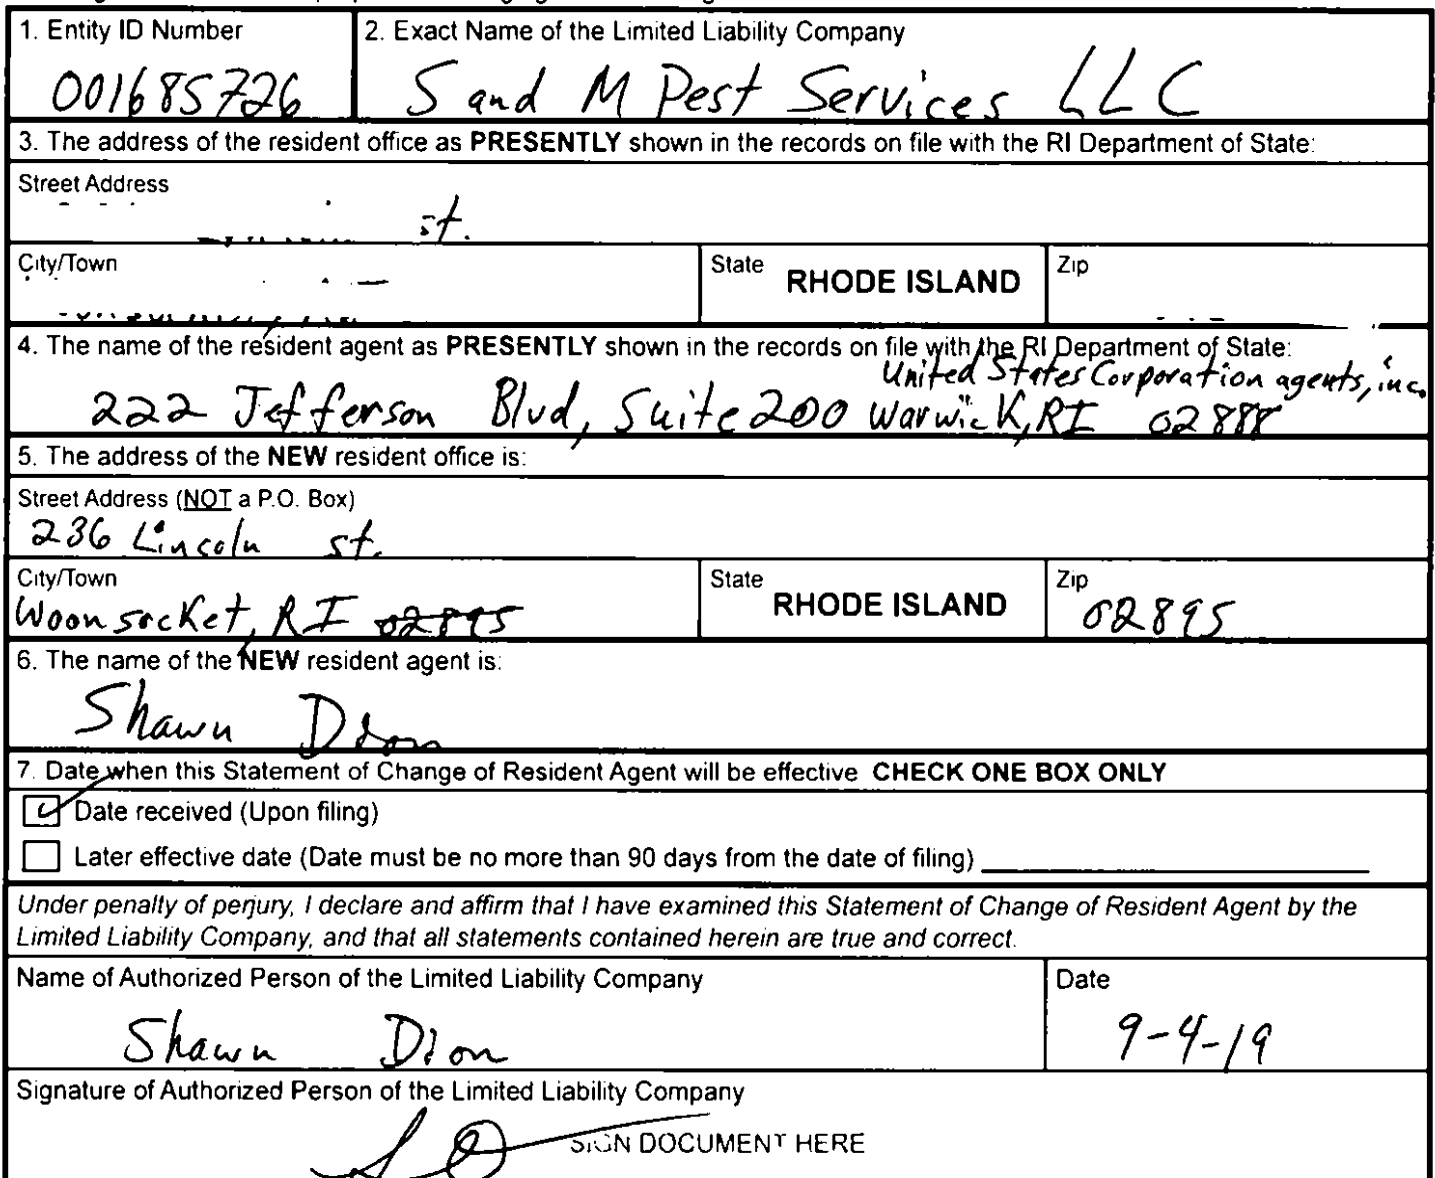 1. Entity ID Number
001685726
2. Exact Name of the Limited Liability Company
S and M Pest Services LLC
3. The address of the resident office as PRESENTLY shown in the records on file with the RI Department of State:
Street Address
st.
City/Town
State RHODE ISLAND
Zip
4. The name of the resident agent as PRESENTLY shown in the records on file with the RI Department of State:
United States Corporation agents, inc.
222 Jefferson Blvd, Suite 200 Warwick, RI 02888
5. The address of the NEW resident office is:
Street Address (NOT a P.O. Box)
236 Lincoln st.
City/Town
Woonsocket, RI 02895
State RHODE ISLAND
Zip
02895
6. The name of the NEW resident agent is:
Shawn Dion
7. Date when this Statement of Change of Resident Agent will be effective CHECK ONE BOX ONLY
Date received (Upon filing)
Later effective date (Date must be no more than 90 days from the date of filing)
Under penalty of perjury, I declare and affirm that I have examined this Statement of Change of Resident Agent by the
Limited Liability Company, and that all statements contained herein are true and correct.
Name of Authorized Person of the Limited Liability Company
Shawn Dion
Date
9-4-19
Signature of Authorized Person of the Limited Liability Company
SIGN DOCUMENT HERE